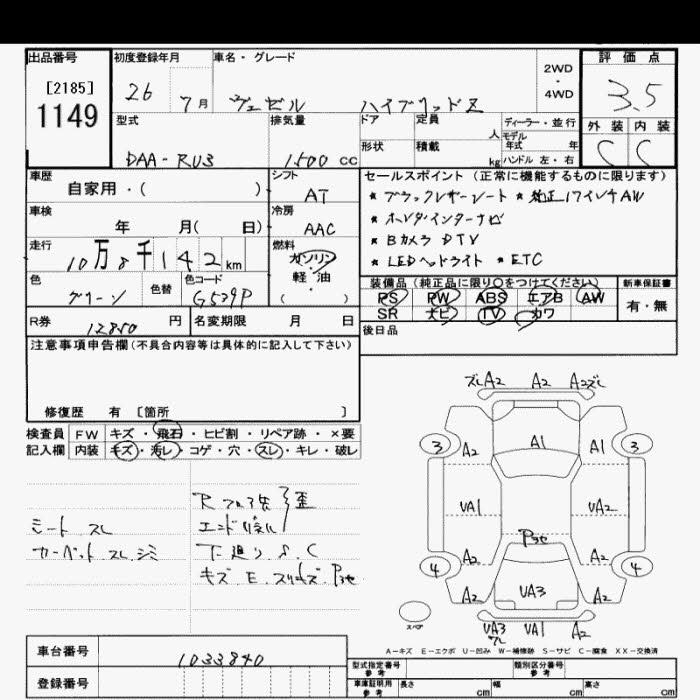 出品番号 初度登録年月 車名・グレード 評価点
[2185] 2WD・4WD
1149 26 7月 ヴェゼル ハイブリッドZ 3.5
型式 排気量 ドア 定員 人 ディーラー・並行 外装 内装
モデル年式 年
DAA-RU3 1500 cc 形状 積載 kg ハンドル 左・右 C C
車歴 シフト セールスポイント(正常に機能するものに限ります)
自家用・( ) AT * ブラックレザーシート * 純正17インチAW
車検 冷房 * ホンダインターナビ
年 月( 日) AAC * Bカメラ DTV
走行 燃料 * LEDヘッドライト * ETC
10万8千142km ガソリン・軽油
( )
色 色替 色コード 装備品(純正品に限り○をつけてください) 新車保証書
グリーン G539P PS PW ABS エアB AW 有・無
SR ナビ TV カワ
R券 12850 円 名変期限 月 日 後日品
注意事項申告欄(不具合内容等は具体的に記入して下さい)
修復歴 有 [箇所 ]
検査員 FW キズ・飛石・ヒビ割・リペア跡・×要
記入欄 内装 キズ・汚レ・コゲ・穴・スレ・キレ・破レ
シート スレ
カーペット スレ シミ
エンドパネル
下廻り S.C
ズレA2 A2 A2ズレ
3 A2 A1 A1 3
VA1 VA2
4 A2 A2 4
A2 VA3 A2
スペア VA3 VA1 A2
A-キズ E-エクボ U-凹み W-補修跡 S-サビ C-腐食 XX-交換済
車台番号 1033840 型式指定番号 参考 類別区分番号 参考
登録番号 車庫証明用 参考 長さ cm 幅 cm 高さ cm